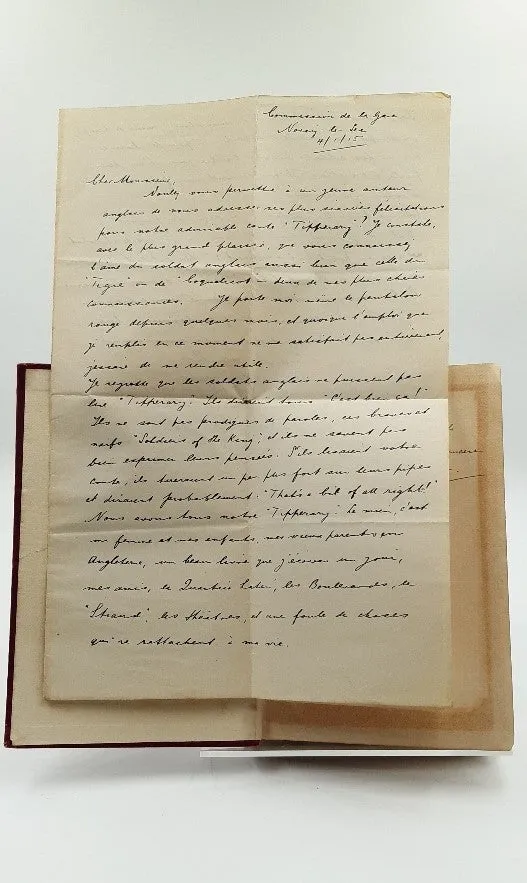 Commission de la Gare
Noisy le Sec
4/1/15
Cher Monsieur,
Voulez vous permettre à un jeune auteur
anglais de vous adresser ses plus sincères félicitations
pour votre admirable conte "Tipperary"? Je constate,
avec le plus grand plaisir, que vous connaissez
l'âme du soldat anglais aussi bien que celle du
"Tigre" ou de "Coquelicot" – deux de mes plus chères
connaissances. Je porte moi même le pantalon
rouge depuis quelques mois, et quoique l'emploi que
je remplis en ce moment ne me satisfait pas entièrement,
j'essaie de me rendre utile.
Je regrette que les soldats anglais ne puissent pas
lire "Tipperary". Ils diraient tous "C'est bien ça!"
Ils ne sont pas prodigues de paroles, ces braves et
naïfs "Soldiers of the King", et ils ne savent pas
bien exprimer leurs pensées. S'ils lisaient votre
conte, ils tireraient un peu plus fort sur leurs pipes
et diraient probablement: "That's a bit of all right!"
Nous avons tous notre "Tipperary": le mien, c'est
ma femme et mes enfants, mes vieux parents en
Angleterre, un beau livre que j'écrirai un jour,
mes amis, le Quartier Latin, les Boulevards, le
"Strand", les théâtres, et une foule de choses
qui se rattachent à ma vie.